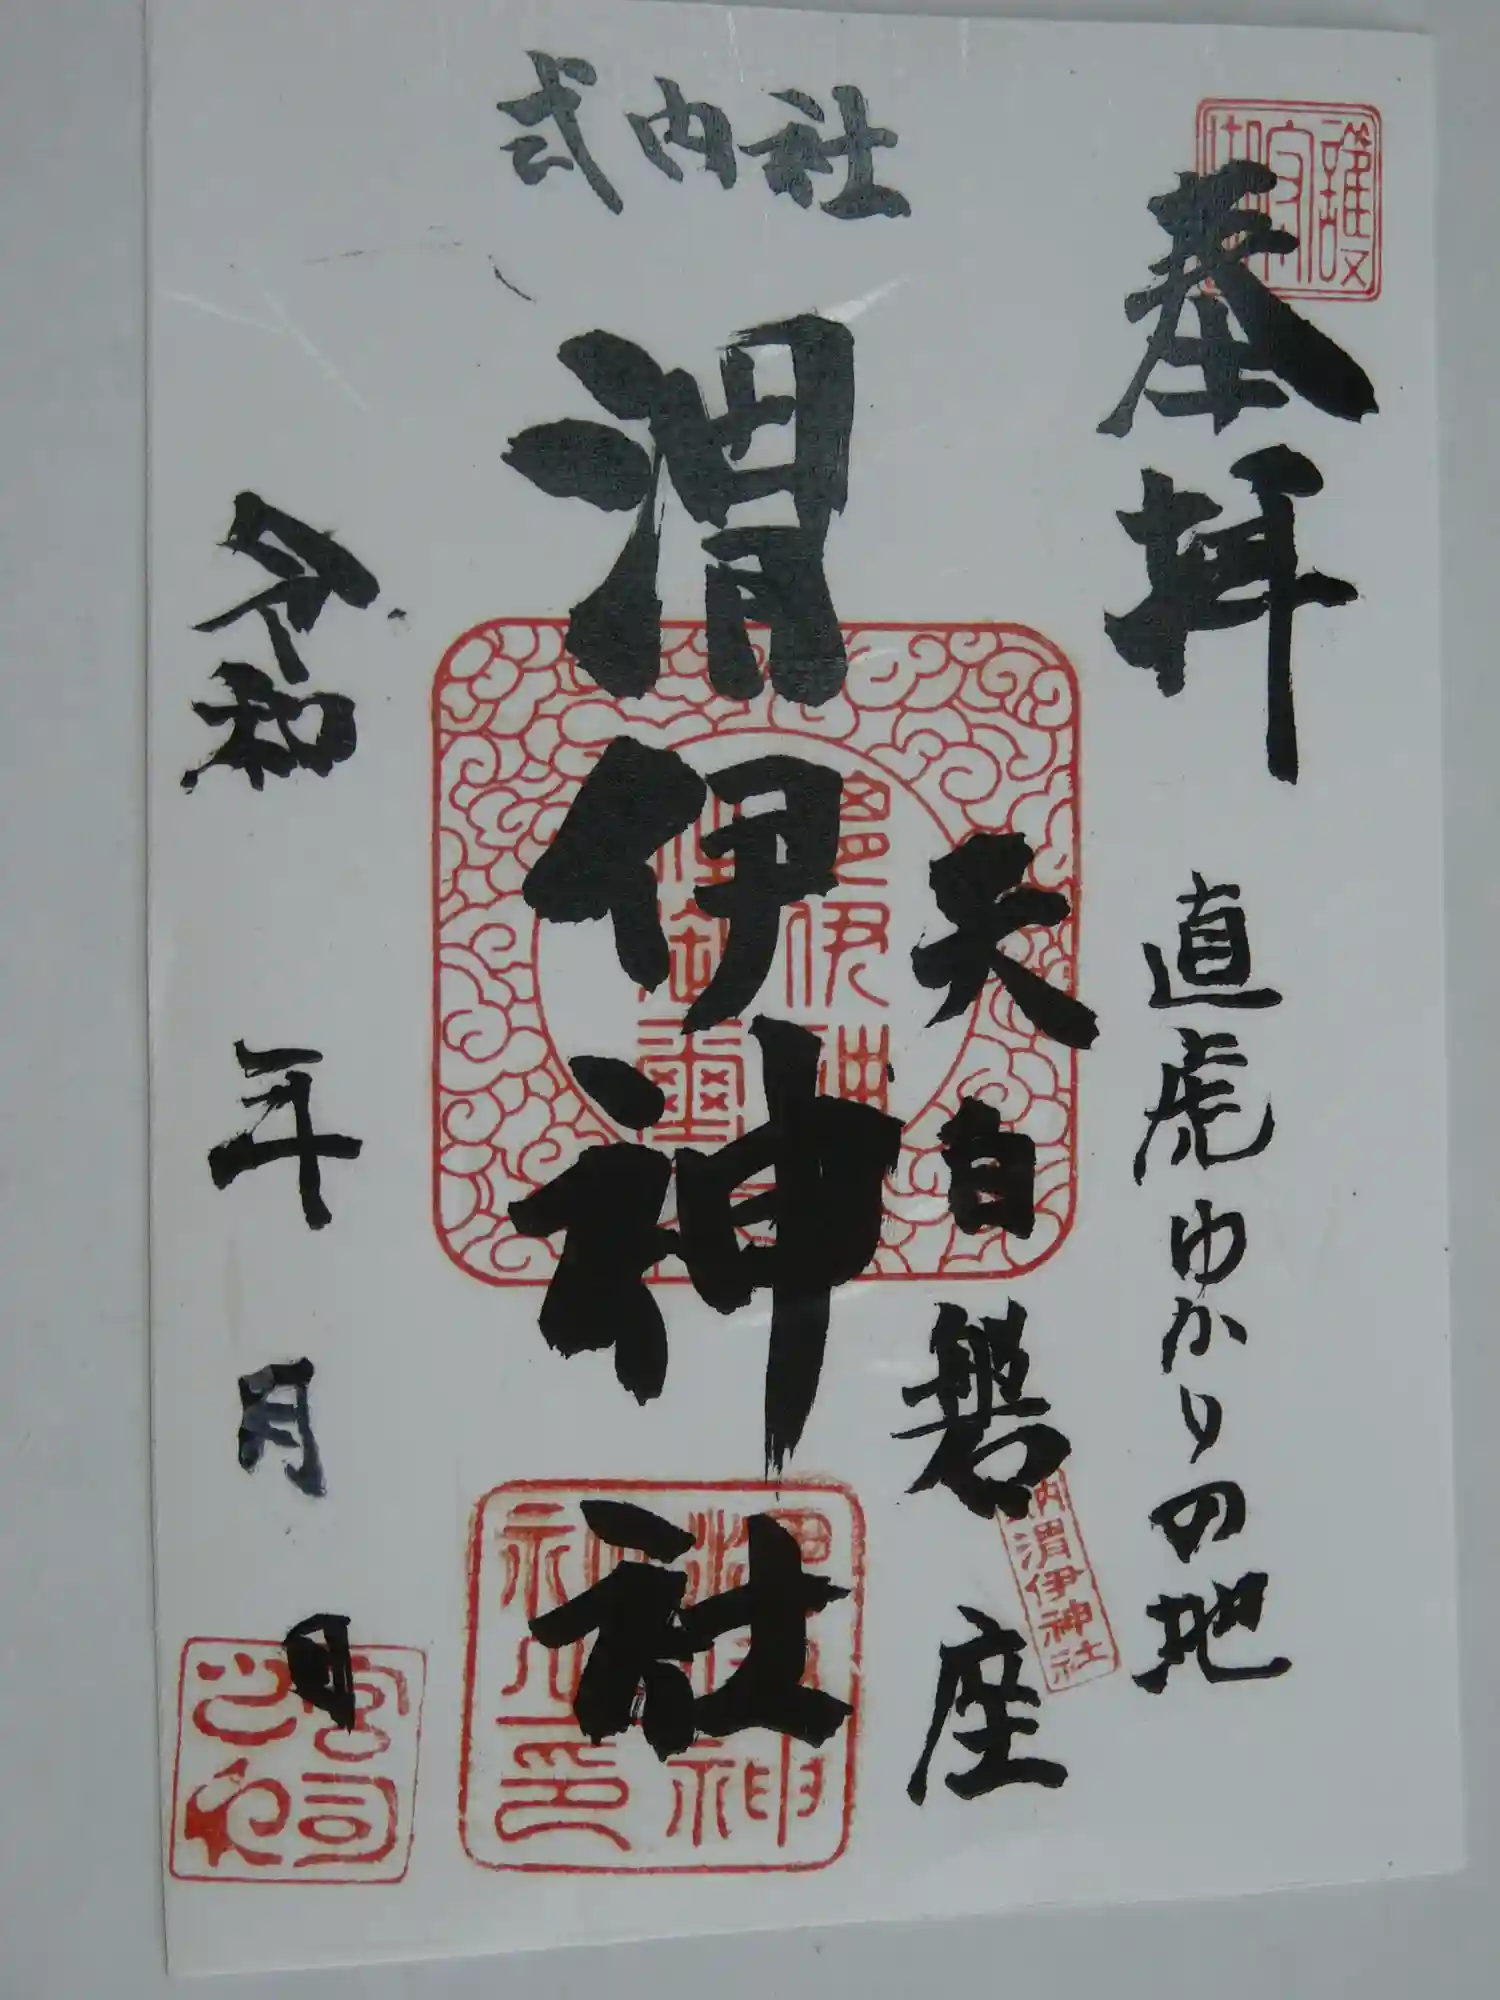 式内社
奉拝
直虎ゆかりの地
天白磐座
渭伊神社
令和 年 月 日
内渭伊神社